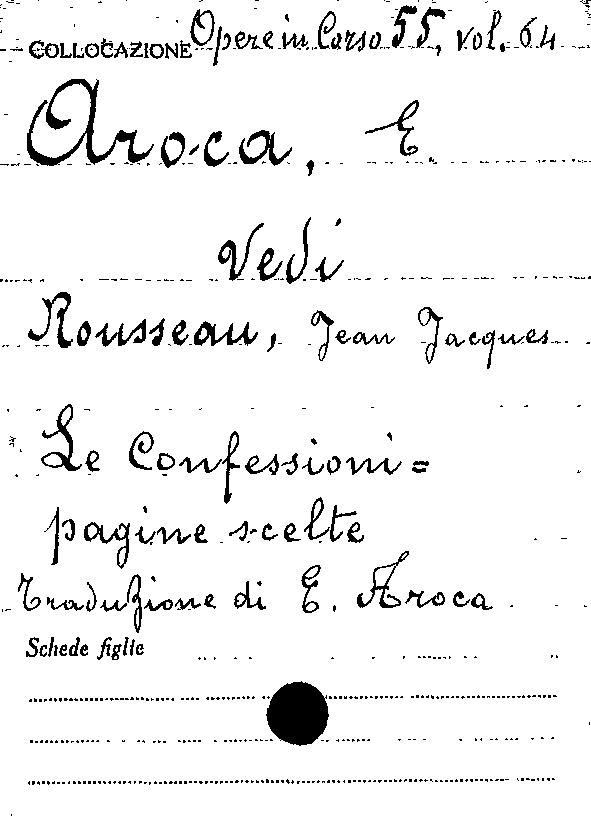 COLLOCAZIONE Opere in Corso 55, vol. 64
Aroca, E.
Vedi
Rousseau, Jean Jacques
Le Confessioni=
pagine scelte
Traduzione di E. Aroca
Schede figlie